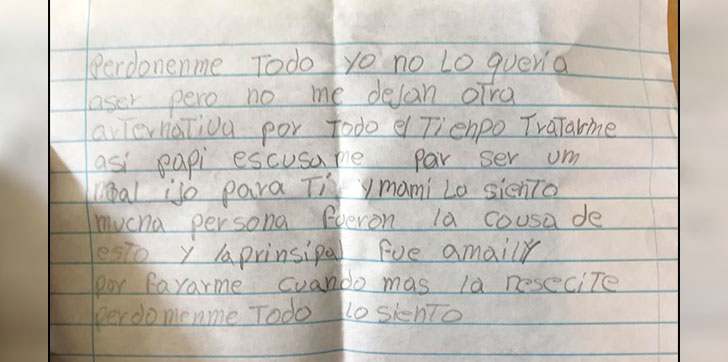 perdonenme Todo yo no Lo queria
aser pero no me dejan otra
arternativa por Todo el Tienpo Tratarme
asi papi escusame par ser um
mal ijo para Ti y mami Lo siento
mucha persona fueron la cousa de
esto y laprinsipal fue amailly
por fayarme cuando mas la nesecite
perdomenme Todo lo siento